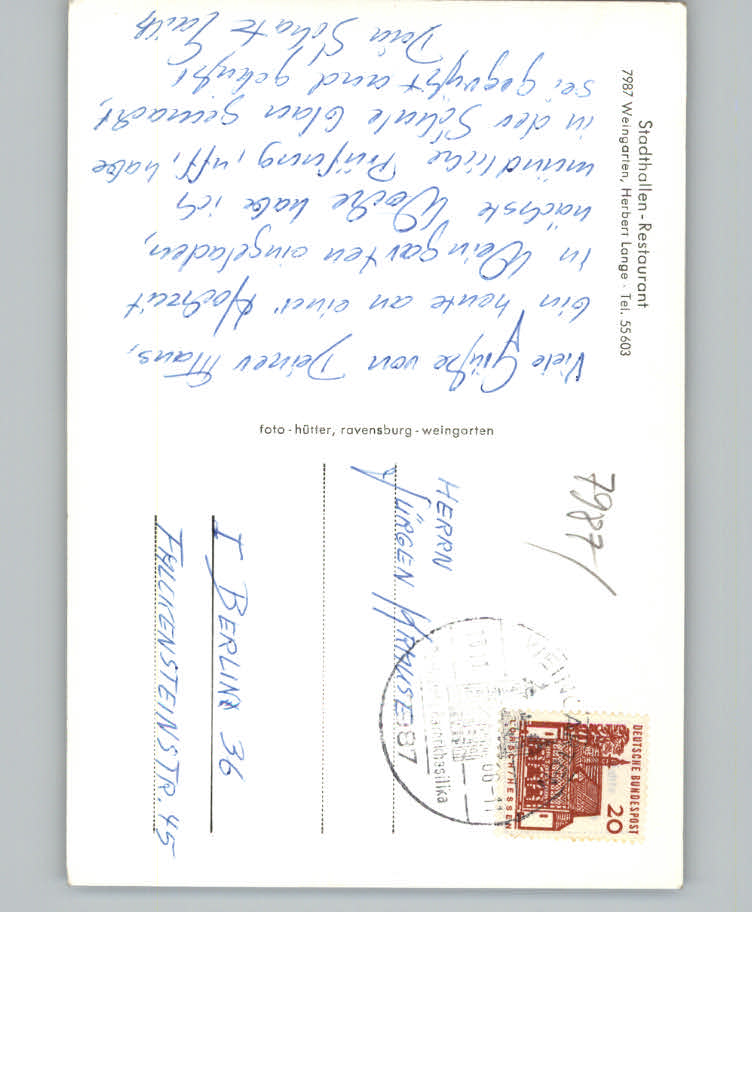 Stadthallen-Restaurant
7987 Weingarten, Herbert Lange · Tel. 55603
Viele Grüße von Deiner Maus,
bin heute an einer Hochzeit
in Weingarten eingeladen,
nächste Woche habe ich
mündliche Prüfung, uff, habe
in der Schule blau gemacht,
sei gegrüßt und geküßt
Dein Schatz
foto-hütter, ravensburg-weingarten
7987
HERRN
JÜRGEN KRAUSE
I BERLIN 36
FALCKENSTEINSTR. 45
DEUTSCHE BUNDESPOST
20
LORSCH/HESSEN
WEINGA
Barockbasilika
87